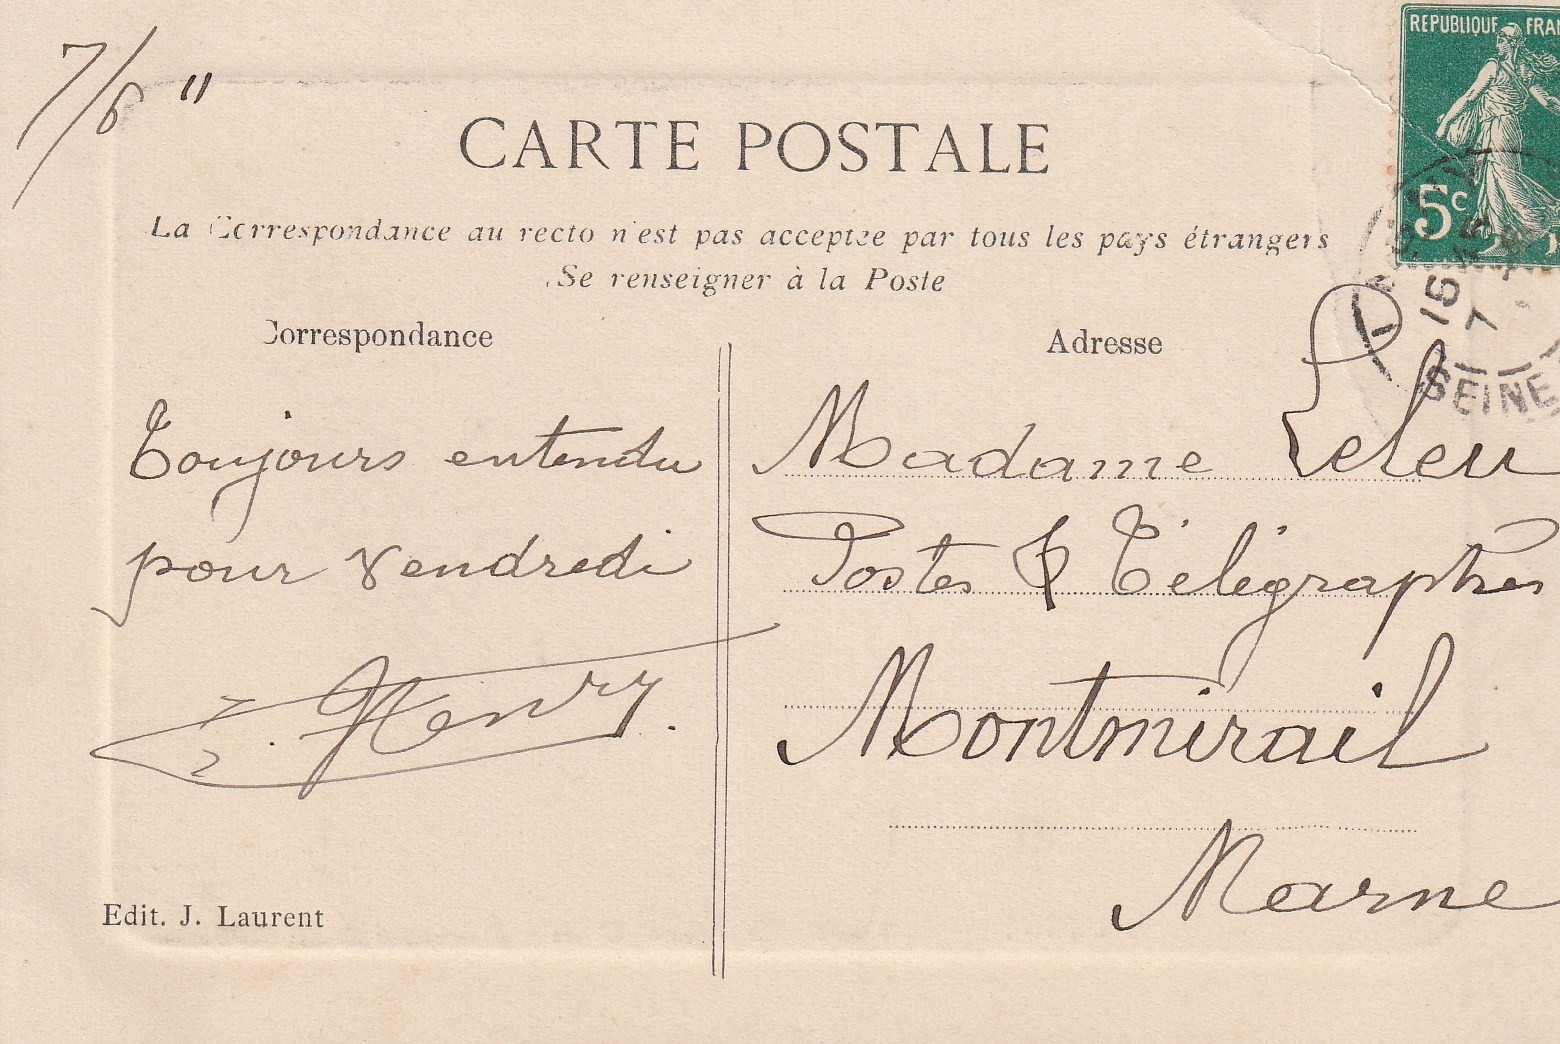 7/6 11
REPUBLIQUE FRAN
5c
CARTE POSTALE
La Correspondance au recto n'est pas acceptée par tous les pays étrangers
Se renseigner à la Poste
Correspondance
Adresse
16 45
7
SEINE
Toujours entendu
pour vendredi
Henry.
Madame Leleu
Postes & Télégraphes
Montmirail
Marne
Edit. J. Laurent